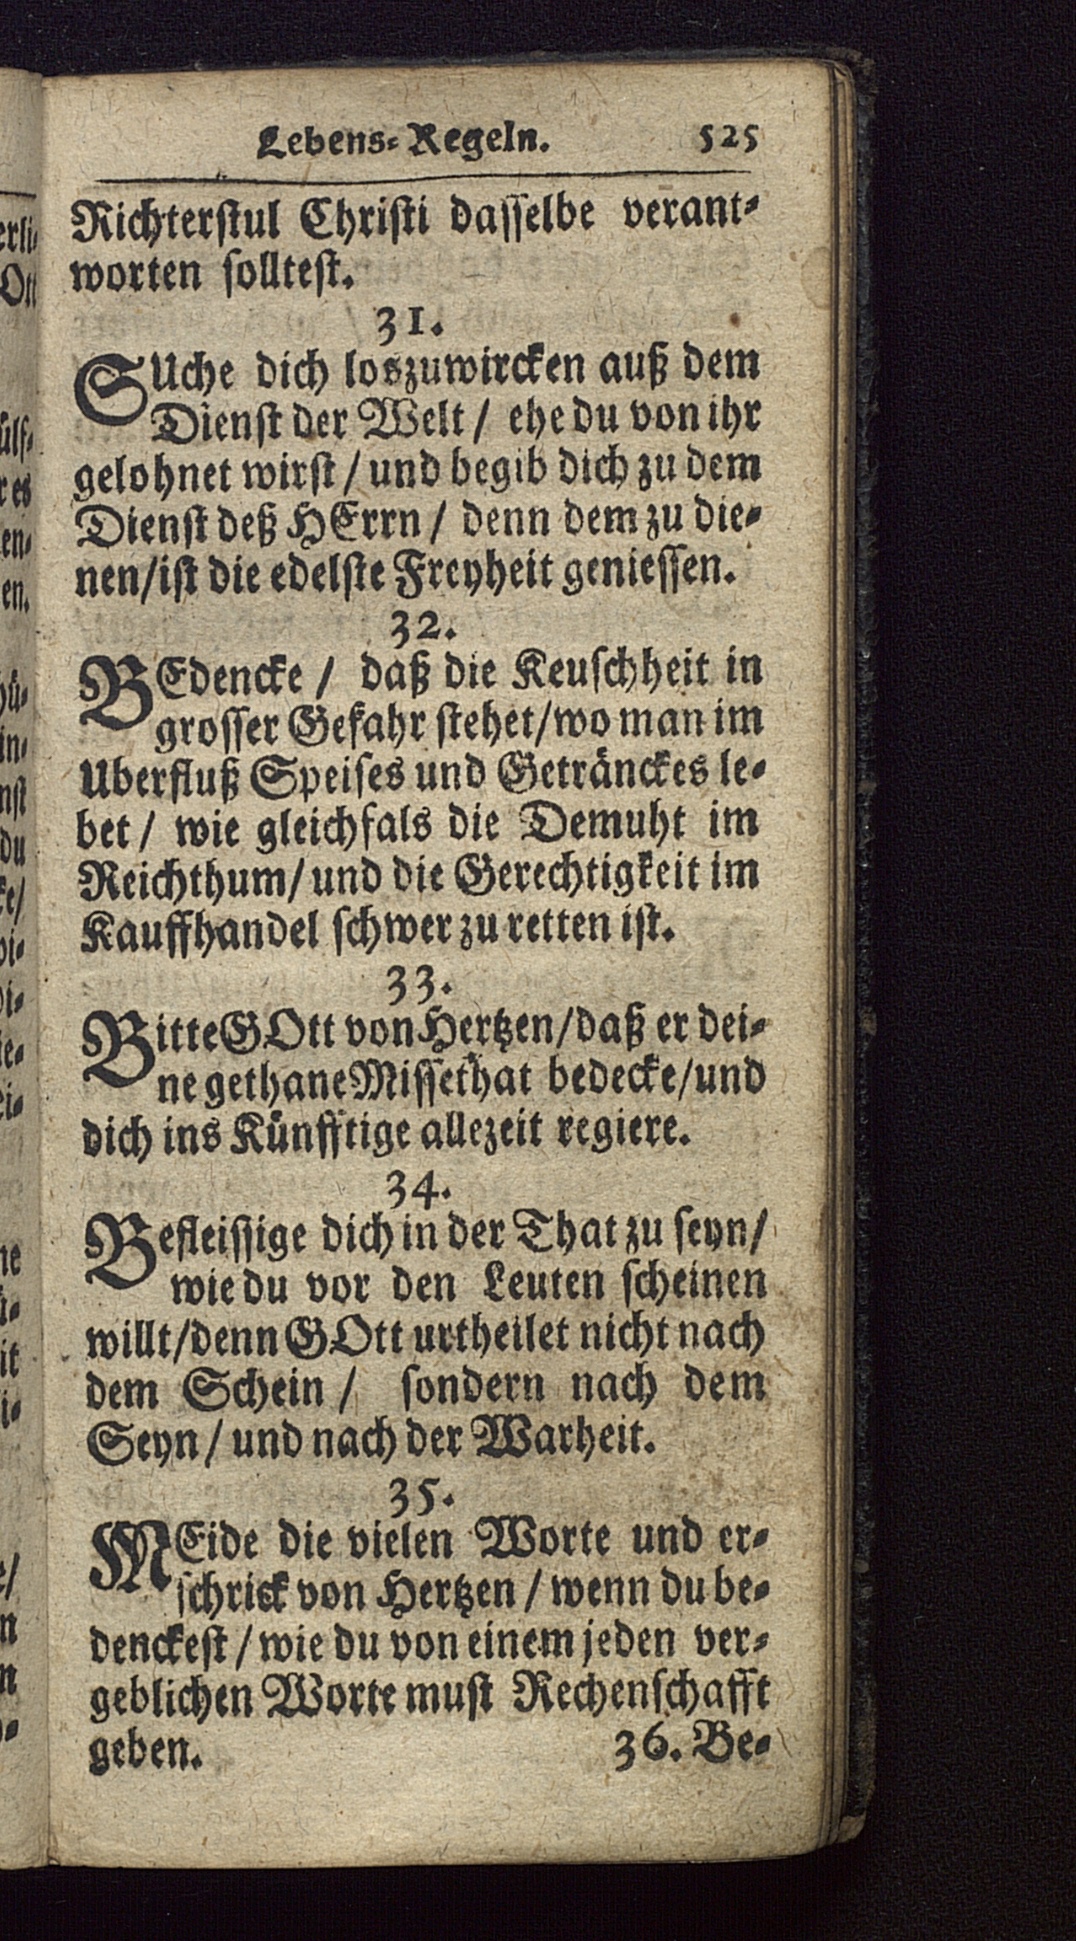 Lebens-Regeln. 525
Richterstul Christi dasselbe verant-
worten solltest.
31.
SUche dich loszuwircken auß dem
Dienst der Welt / ehe du von ihr
gelohnet wirst / und begib dich zu dem
Dienst deß HErrn / denn dem zu die-
nen/ist die edelste Freyheit geniessen.
32.
BEdencke / daß die Keuschheit in
grosser Gefahr stehet/wo man im
Uberfluß Speises und Getränckes le-
bet / wie gleichfals die Demuht im
Reichthum/ und die Gerechtigkeit im
Kauffhandel schwer zu retten ist.
33.
Bitte GOtt von Hertzen/daß er dei-
ne gethane Missethat bedecke/und
dich ins Künfftige allezeit regiere.
34.
Befleissige dich in der That zu seyn/
wie du vor den Leuten scheinen
willt/denn GOtt urtheilet nicht nach
dem Schein / sondern nach dem
Seyn / und nach der Warheit.
35.
MEide die vielen Worte und er-
schrick von Hertzen / wenn du be-
denckest / wie du von einem jeden ver-
geblichen Worte must Rechenschafft
geben. 36. Be-